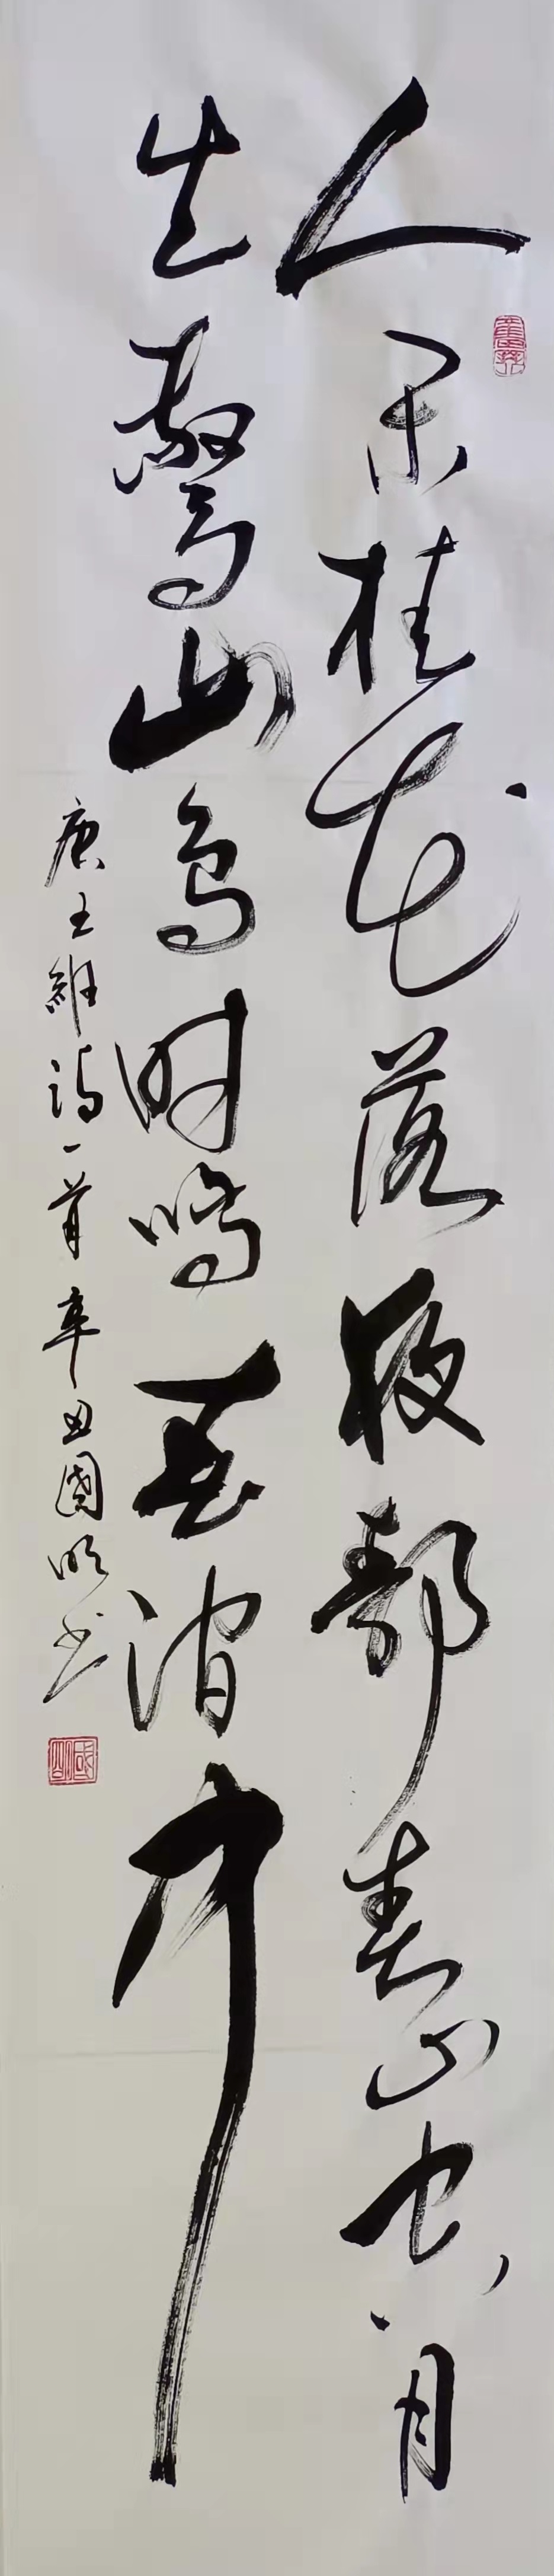 人闲桂花落夜静春山空月
出驚山鸟时鸣春涧中
唐王維诗一首辛丑國明书
國明